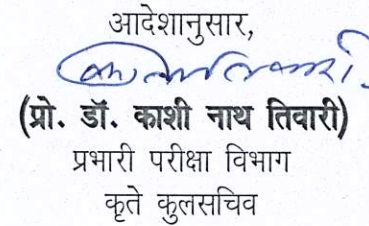 आदेशानुसार,
(प्रो. डॉ. काशी नाथ तिवारी)
प्रभारी परीक्षा विभाग
कृते कुलसचिव